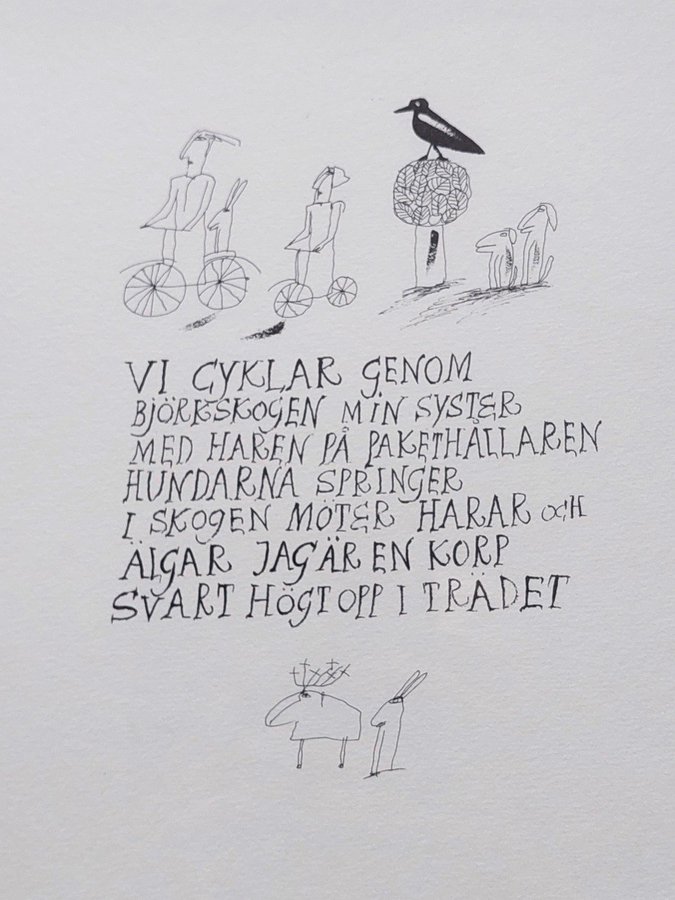 VI CYKLAR GENOM
BJÖRKSKOGEN MIN SYSTER
MED HAREN PÅ PAKETHÅLLAREN
HUNDARNA SPRINGER
I SKOGEN MÖTER HARAR OCH
ÄLGAR JAG ÄR EN KORP
SVART HÖGT OPP I TRÄDET